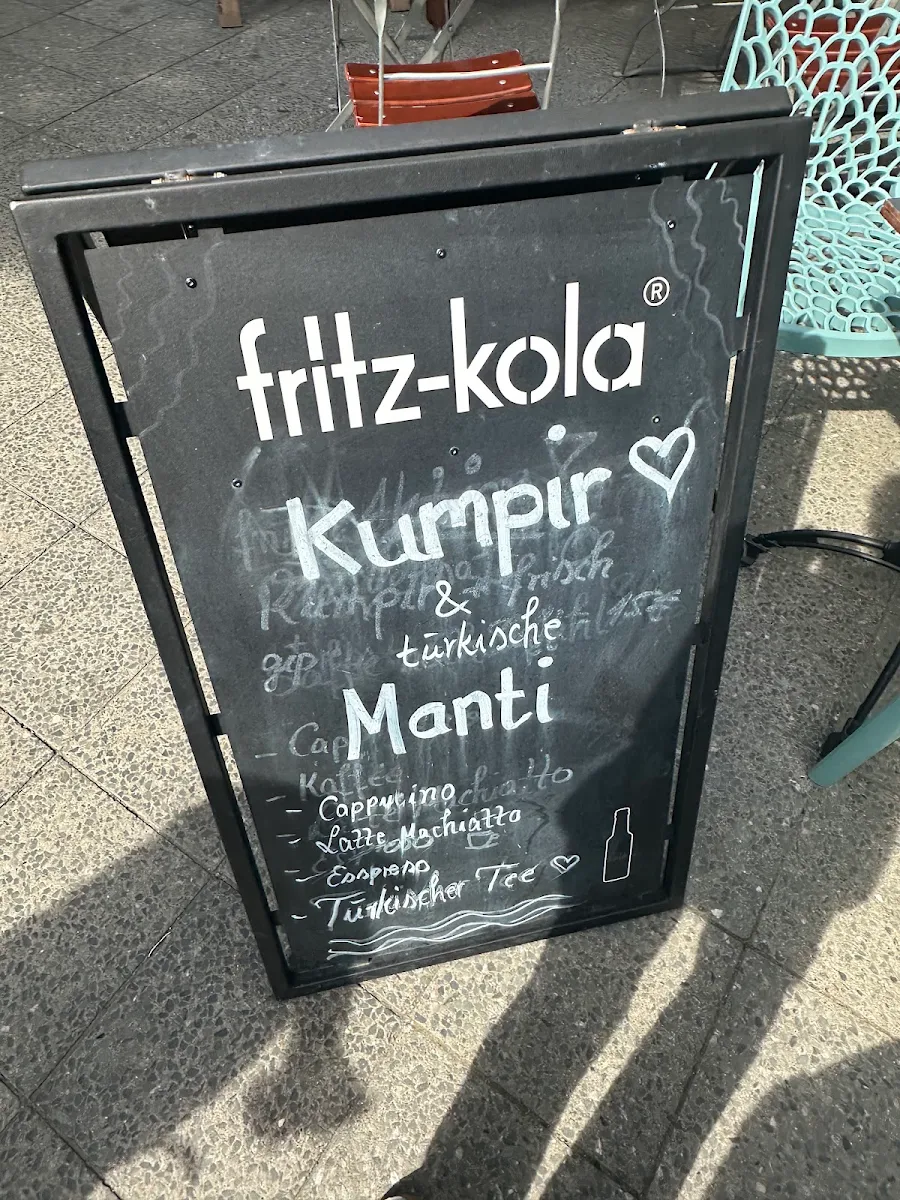 fritz-kola®
Kumpir
&
türkische
Manti
- Cappucino
- Latte Machiatto
- Esspreso
- Türkischer Tee